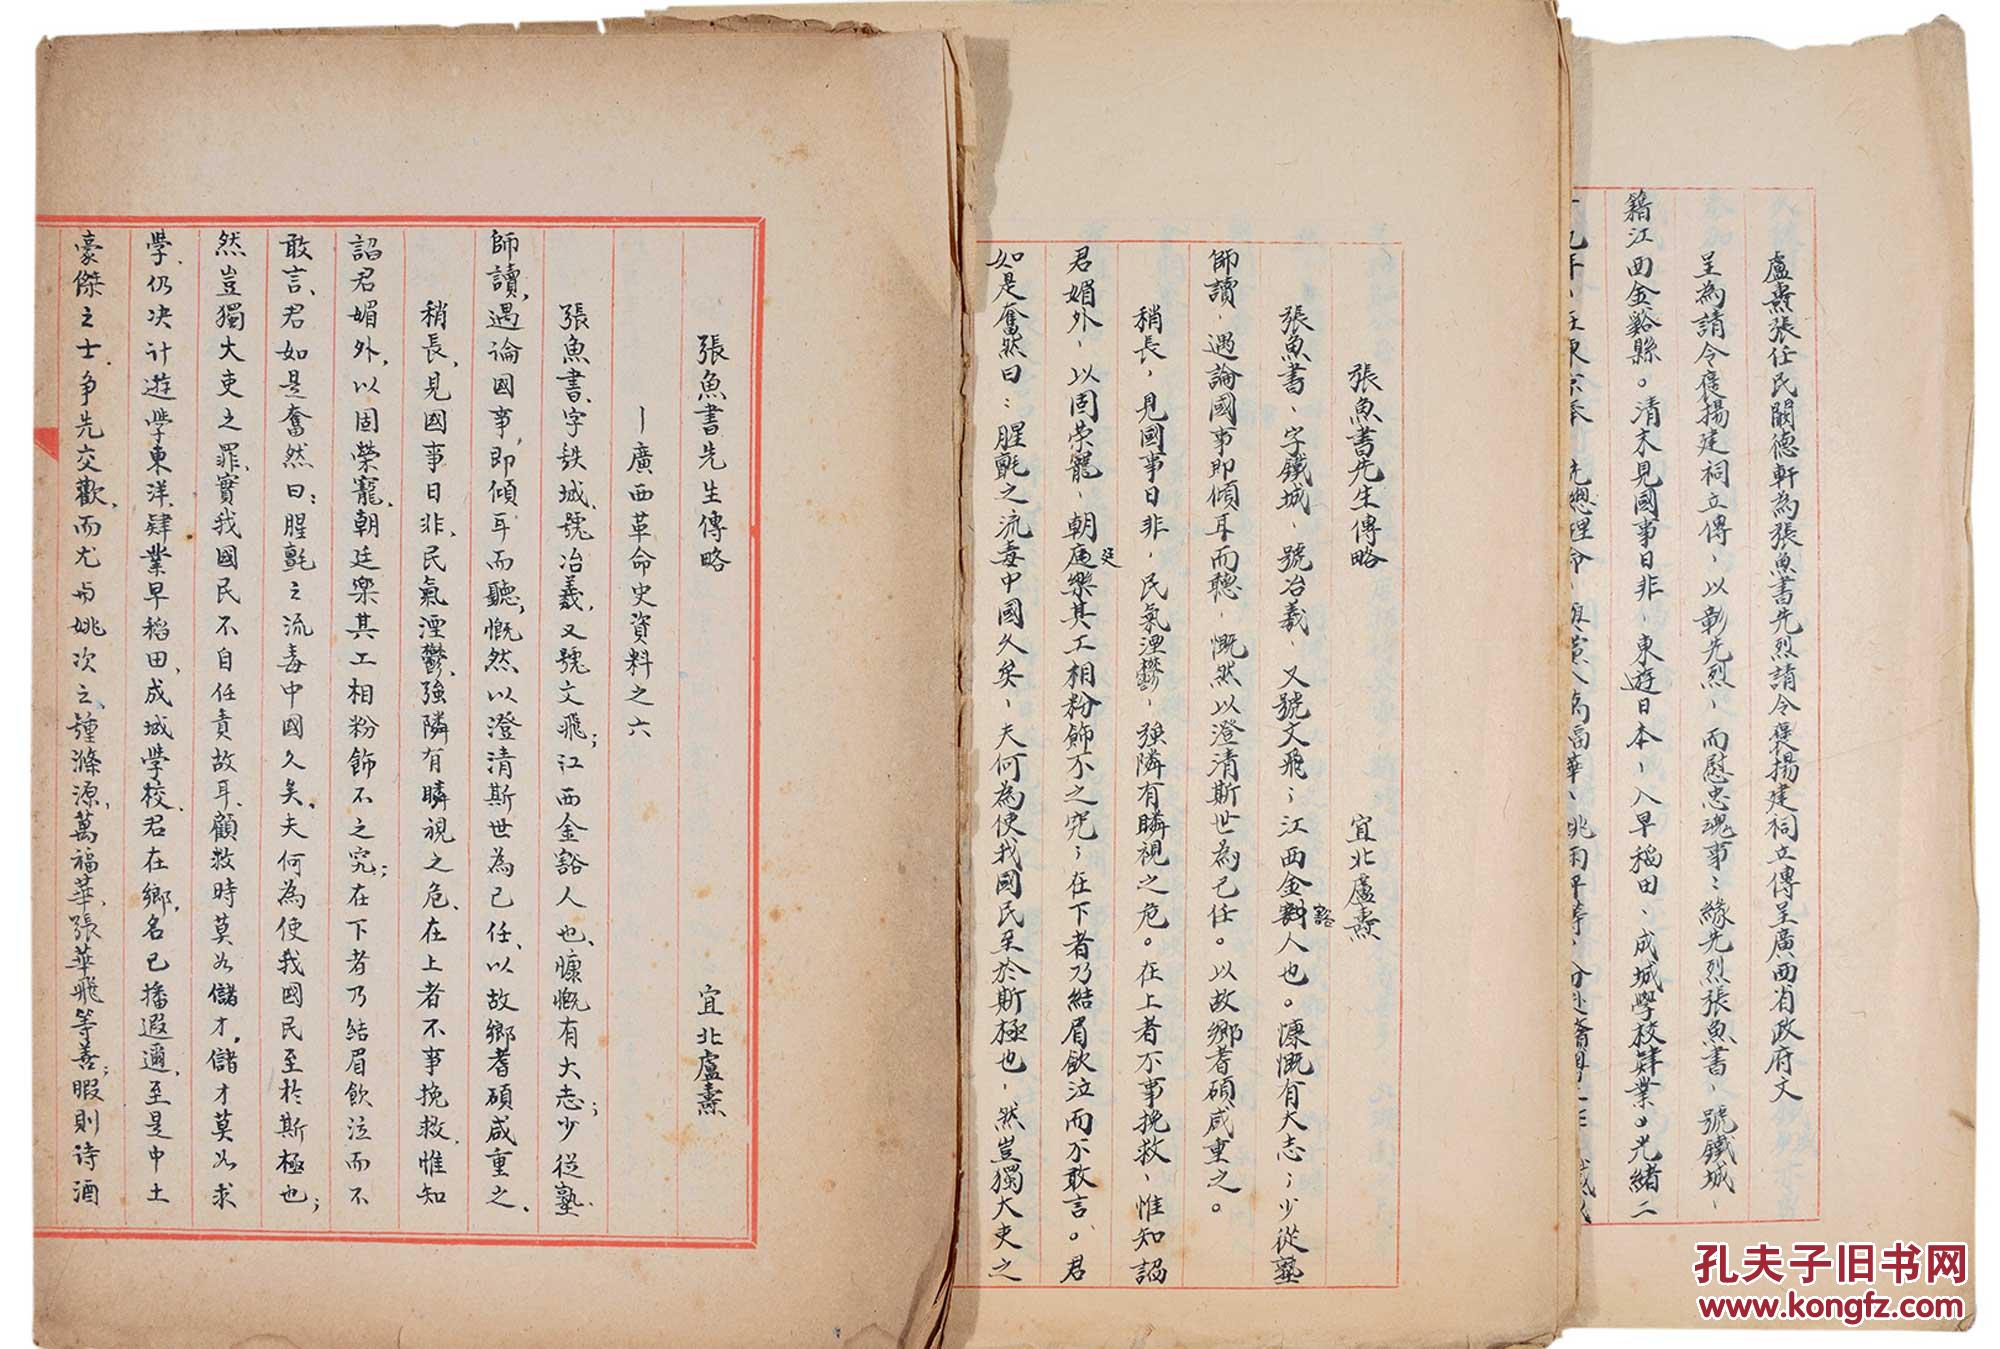 盧燾張任民闞德軒為張魚書先烈請令褒揚建祠立傳呈廣西省政府文
呈為請令褒揚建祠立傳、以彰先烈、而慰忠魂事：緣先烈張魚書、號鐵城、
籍江西金谿縣。清末見國事日非、東遊日本、入早稻田、成城學校肄業。光緒二
張魚書先生傳略 宜北盧燾
張魚書、字鐵城、號冶羲、又號文飛；江西金谿人也。慷慨有大志；少從塾
師讀、遇論國事即傾耳而聽、慨然以澄清斯世為己任。以故鄉耆碩咸重之。
稍長、見國事日非、民氣湮鬱、強隣有瞵視之危。在上者不事挽救、惟知謟
君媚外、以固荣寵、朝廷樂其工相粉飾不之究；在下者乃結眉飲泣而不敢言、。君
如是奮然曰：腥氈之流毒中國久矣、夫何為使我國民至於斯極也、然豈獨大吏之
張魚書先生傳略 宜北盧燾
—廣西革命史資料之六
張魚書、字铁城、號冶羲、又號文飛；江西金谿人也、慷慨有大志；少從塾
師讀、遇論國事、即傾耳而聽、慨然以澄清斯世為己任、以故鄉耆碩咸重之、
稍長、見國事日非、民氣湮鬱、強隣有瞵視之危、在上者不事挽救、惟知
謟君媚外、以固榮寵、朝廷樂其工相粉飾不之究；在下者乃結眉飲泣而不
敢言、君如是奮然曰：腥氈之流毒中國久矣、夫何為使我國民至於斯極也；
然豈獨大吏之罪、實我國民不自任責故耳、顧救時莫如儲才、儲才莫如求
學、仍决计遊學東洋、肄業早稻田、成城學校、君在鄉、名已播遐邇、至是中土
豪傑之士、争先交歡、而尤与姚次之、鍾滌源、萬福華、張華飛等善；暇則诗酒
孔夫子旧书网
www.kongfz.com